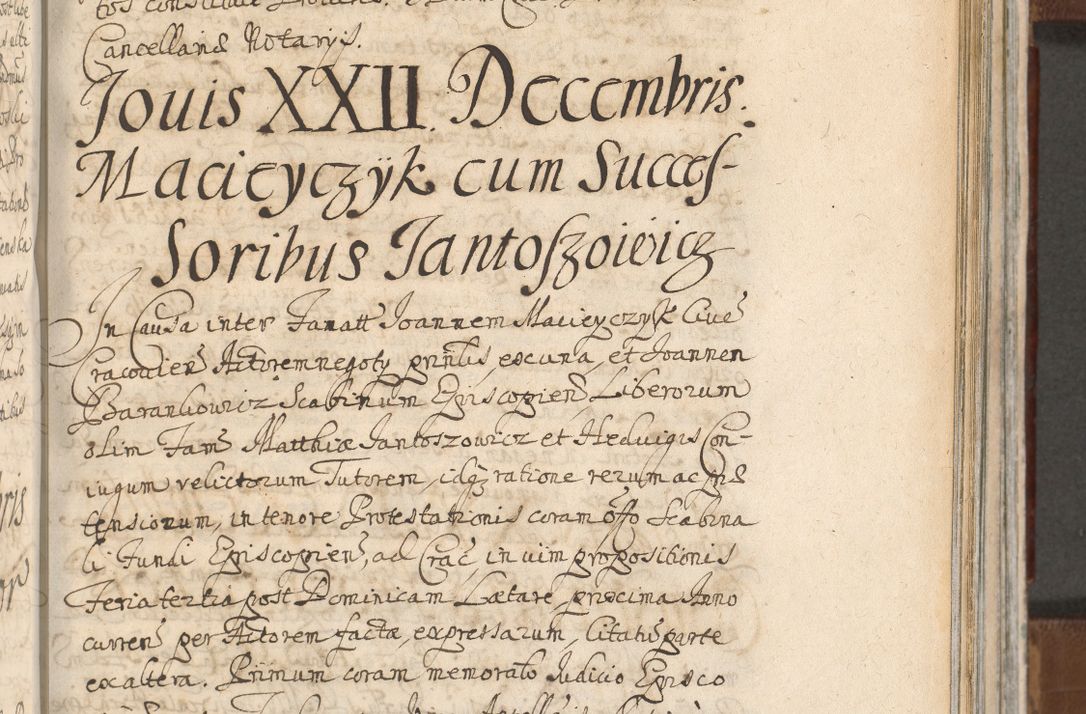 Cancellariæ Notarijs.
Jouis XXII. Decembris.
Macieyczÿk cum Succes-
soribus Jantoszowicz
In Causa inter Famatt Joannem Macieyczÿk Ciuē
Cracouieñ Actorem negotÿ pñtis, ex una, et Joannen
Barankowicz Scabinum Episcopieñ Liberorum
olim Fam Matthiæ Jantoszowicz et Heduigis Con-
iugum relictorum Tutorem, idqz ratione rerum ac præ
tensionum, in tenore Protestationis coram offo Scabina
li Fundi Episcopieñ, ad Crac, in uim propositionis
Feria tertia post Dominicam Lætare proxima Anno
curren per Actorem factæ, expressarum, Citatū parte
ex altera. Primum coram memorato Judicio Episco